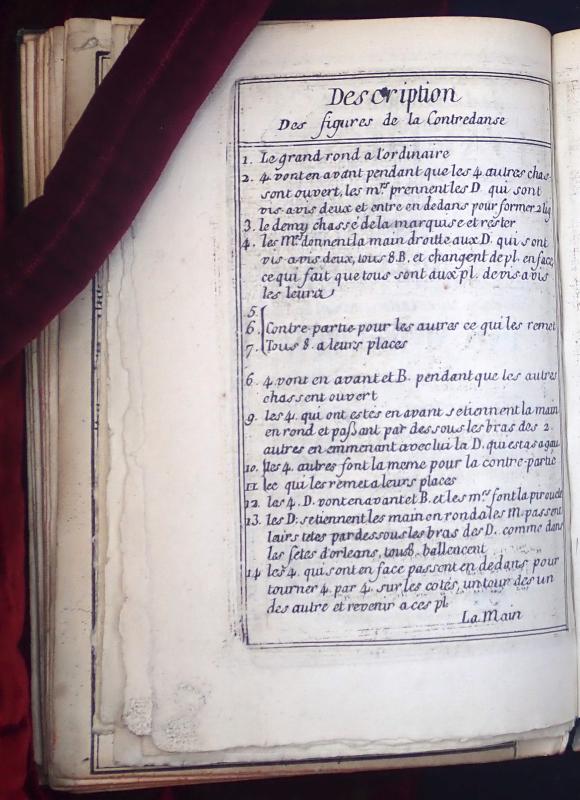 Description
Des figures de la Contredanse
1. Le grand rond a l'ordinaire
2. 4. vont en avant pendant que les 4. autres chas-
sont ouvert, les mrs prennent les D. qui sont
vis-avis deux et entre en dedans pour former 2 lig
3. le demy chassé de la marquise et rester
4. les Mrs donnent la main droitte aux D. qui sont
vis-avis deux, tous 8. B. et changent de pl. en face,
ce qui fait que tous sont aux pl. de vis avis
les leurs
5.
6. Contre-partie pour les autres ce qui les remet
7. Tous 8. a leurs places
6. 4 vont en avant et B. pendant que les autres
chassent ouvert
9. les 4. qui ont estés en avant se tiennent la main
en rond et paßant par dessous les bras des 2.
autres en emmenant avec lui la D. qui est a sa gau
10. les 4. autres font la meme pour la contre-partie
11. ce qui les remet a leurs places
12. les 4. D. vont en avant et B. et les mrs font la pirouete
13. les D. se tiennent les main en rond a les M. passent
leurs tetes par dessous les bras des D. comme dans
les fetes d'orleans, tous 8. ballencent
14 les 4. qui sont en face passent en dedans pour
tourner 4. par 4. sur les cotés, un tour des un
des autre et revenir a ces pl.
La Main